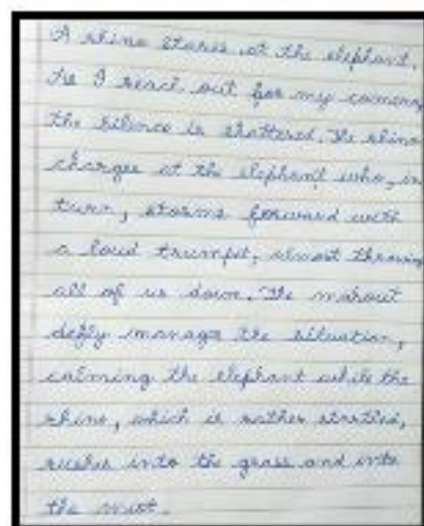 A rhino stares at the elephant.
As I reach out for my camera,
the silence is shattered. The rhino
charges at the elephant who, in
turn, storms forward with
a loud trumpet, almost throwing
all of us down. The mahout
deftly manage the situation,
calming the elephant while the
rhino, which is rather startled,
rushes into the grass and into
the mist.